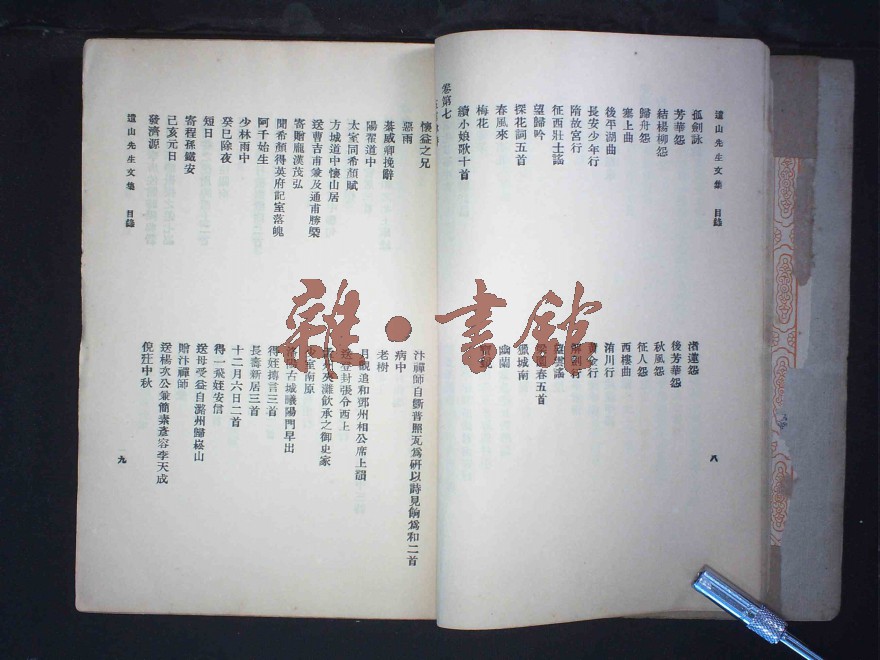 遺山先生文集 目錄
孤劍詠
渚蓮怨
芳華怨
後芳華怨
結楊柳怨
秋風怨
歸舟怨
征人怨
塞上曲
西樓曲
後平湖曲
湘川行
長安少年行
黃金行
隋故宮行
解劍行
征西壯士謠
望雲謠
望歸吟
探花詞五首
春五首
春風來
獵城南
梅花
幽蘭
續小娘歌十首
八
卷第七
懷益之兄
汴禪師自斲普照瓦為研以詩見餉為和二首
惡雨
病中
綦威卿挽辭
老樹
陽翟道中
月觀追和鄧州相公席上韻
太室同希顏賦
送登封張令西上
方城道中懷山居
灘飲承之御史家
送曹吉甫兼及通甫勝槩
少室南原
寄贈龐漢茂弘
古城曦陽門早出
聞希顏得英府記室落魄
得姪摶言三首
阿千始生
長壽新居三首
少林雨中
十二月六日二首
癸巳除夜
得一飛姪安信
短日
送母受益自潞州歸崧山
寄程孫鐵安
贈汴禪師
己亥元日
送楊次公兼簡秦彥容李天成
發濟源
倪莊中秋
遺山先生文集 目錄
九
雜·書館